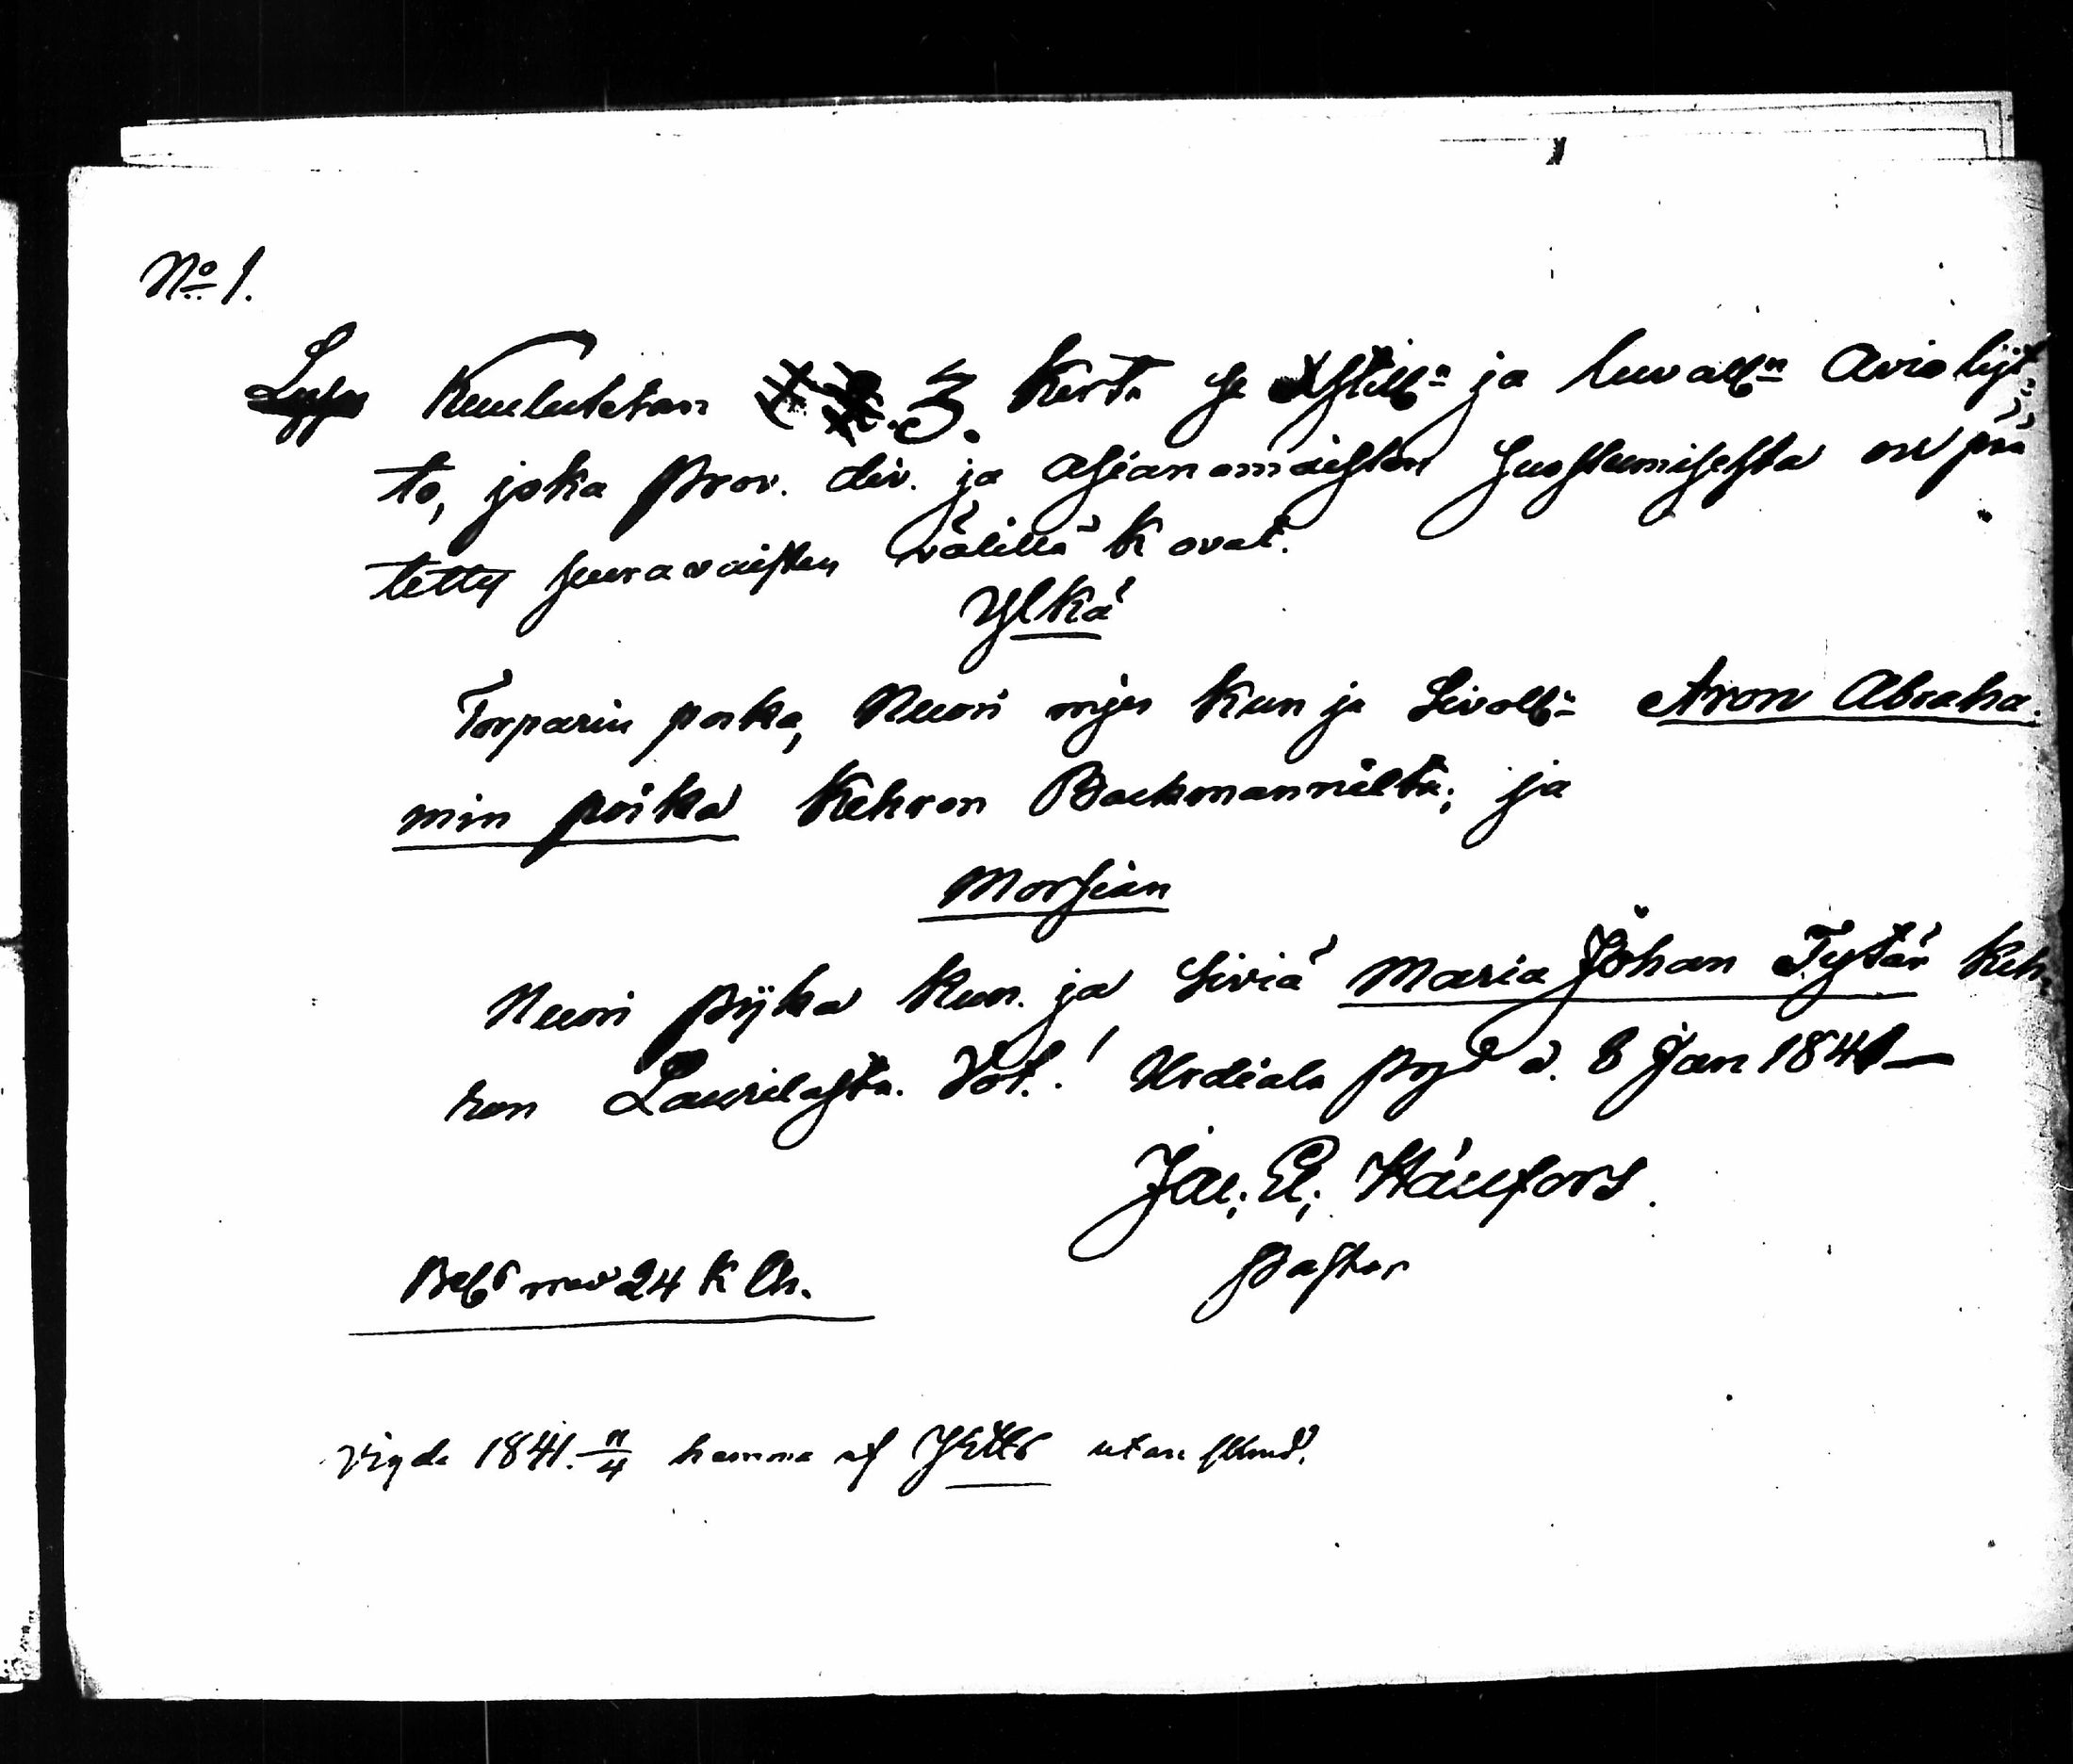 No 1.
Kuulutetan 3. Kerta se Xstill:n ja luvall:n Aviolijt:
to, joka prov. div. ja asianomaisten suostumisesta on pää
tetty seuravaisten välillä k ovat.
Ylkä
Torparin poika, Nuori mjes kun ja Sivoll:n Aron Abraha.
min poika Kehron Backmannilta; ja
Morsian
Nuori pijka kun. ja Siviä Maria Johan Tytär Keh
ron Laurilasta. Tot.! Urdiala pgd d. 8 Jan 1841
Jac. El. Hällfors.
Pastor
24 k
Vigde 1841. 11/4 hemma af utan